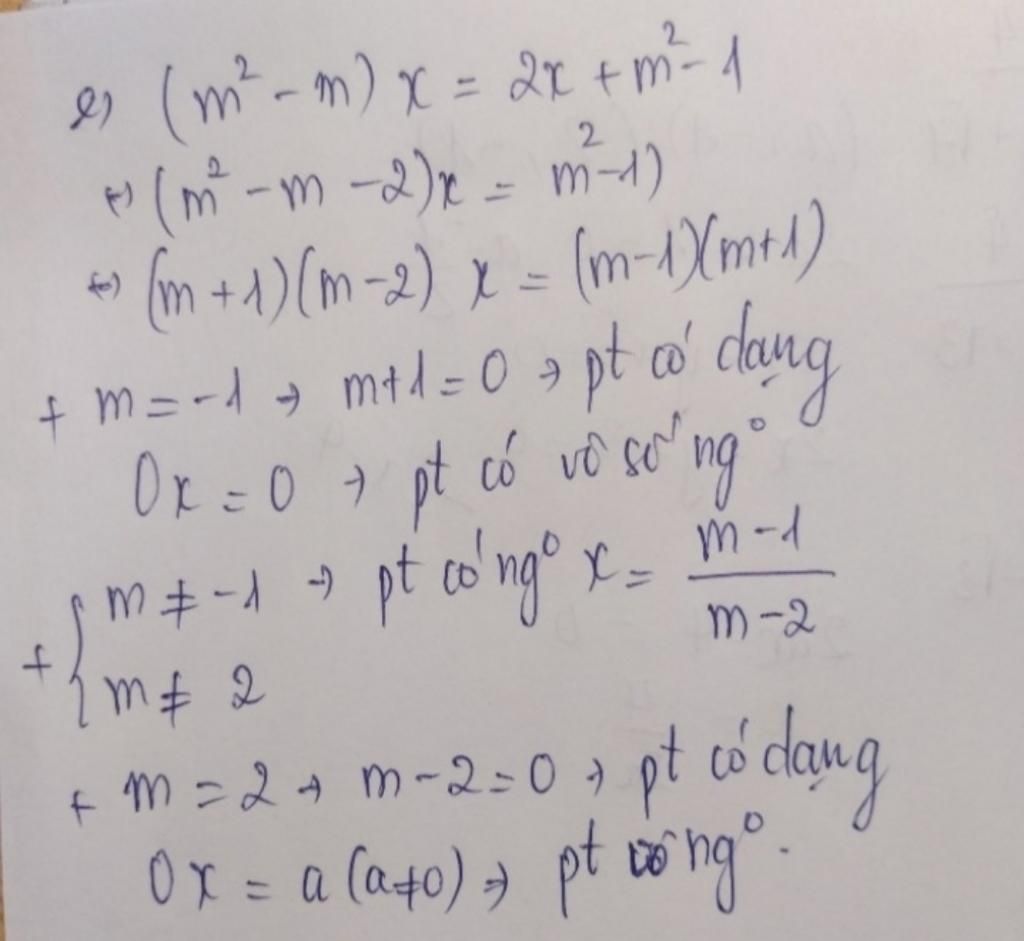 e) (m² - m) x = 2x + m² - 1
⇔ (m² - m - 2)x = m² - 1)
⇔ (m + 1)(m - 2) x = (m - 1)(m + 1)
+ m = -1 → m + 1 = 0 → pt có dạng
0x = 0 → pt có vô số ng°
+ { m ≠ -1 → pt có ng° x = (m - 1)/(m - 2)
m ≠ 2
+ m = 2 → m - 2 = 0 → pt có dạng
0x = a (a ≠ 0) → pt vô ng°.